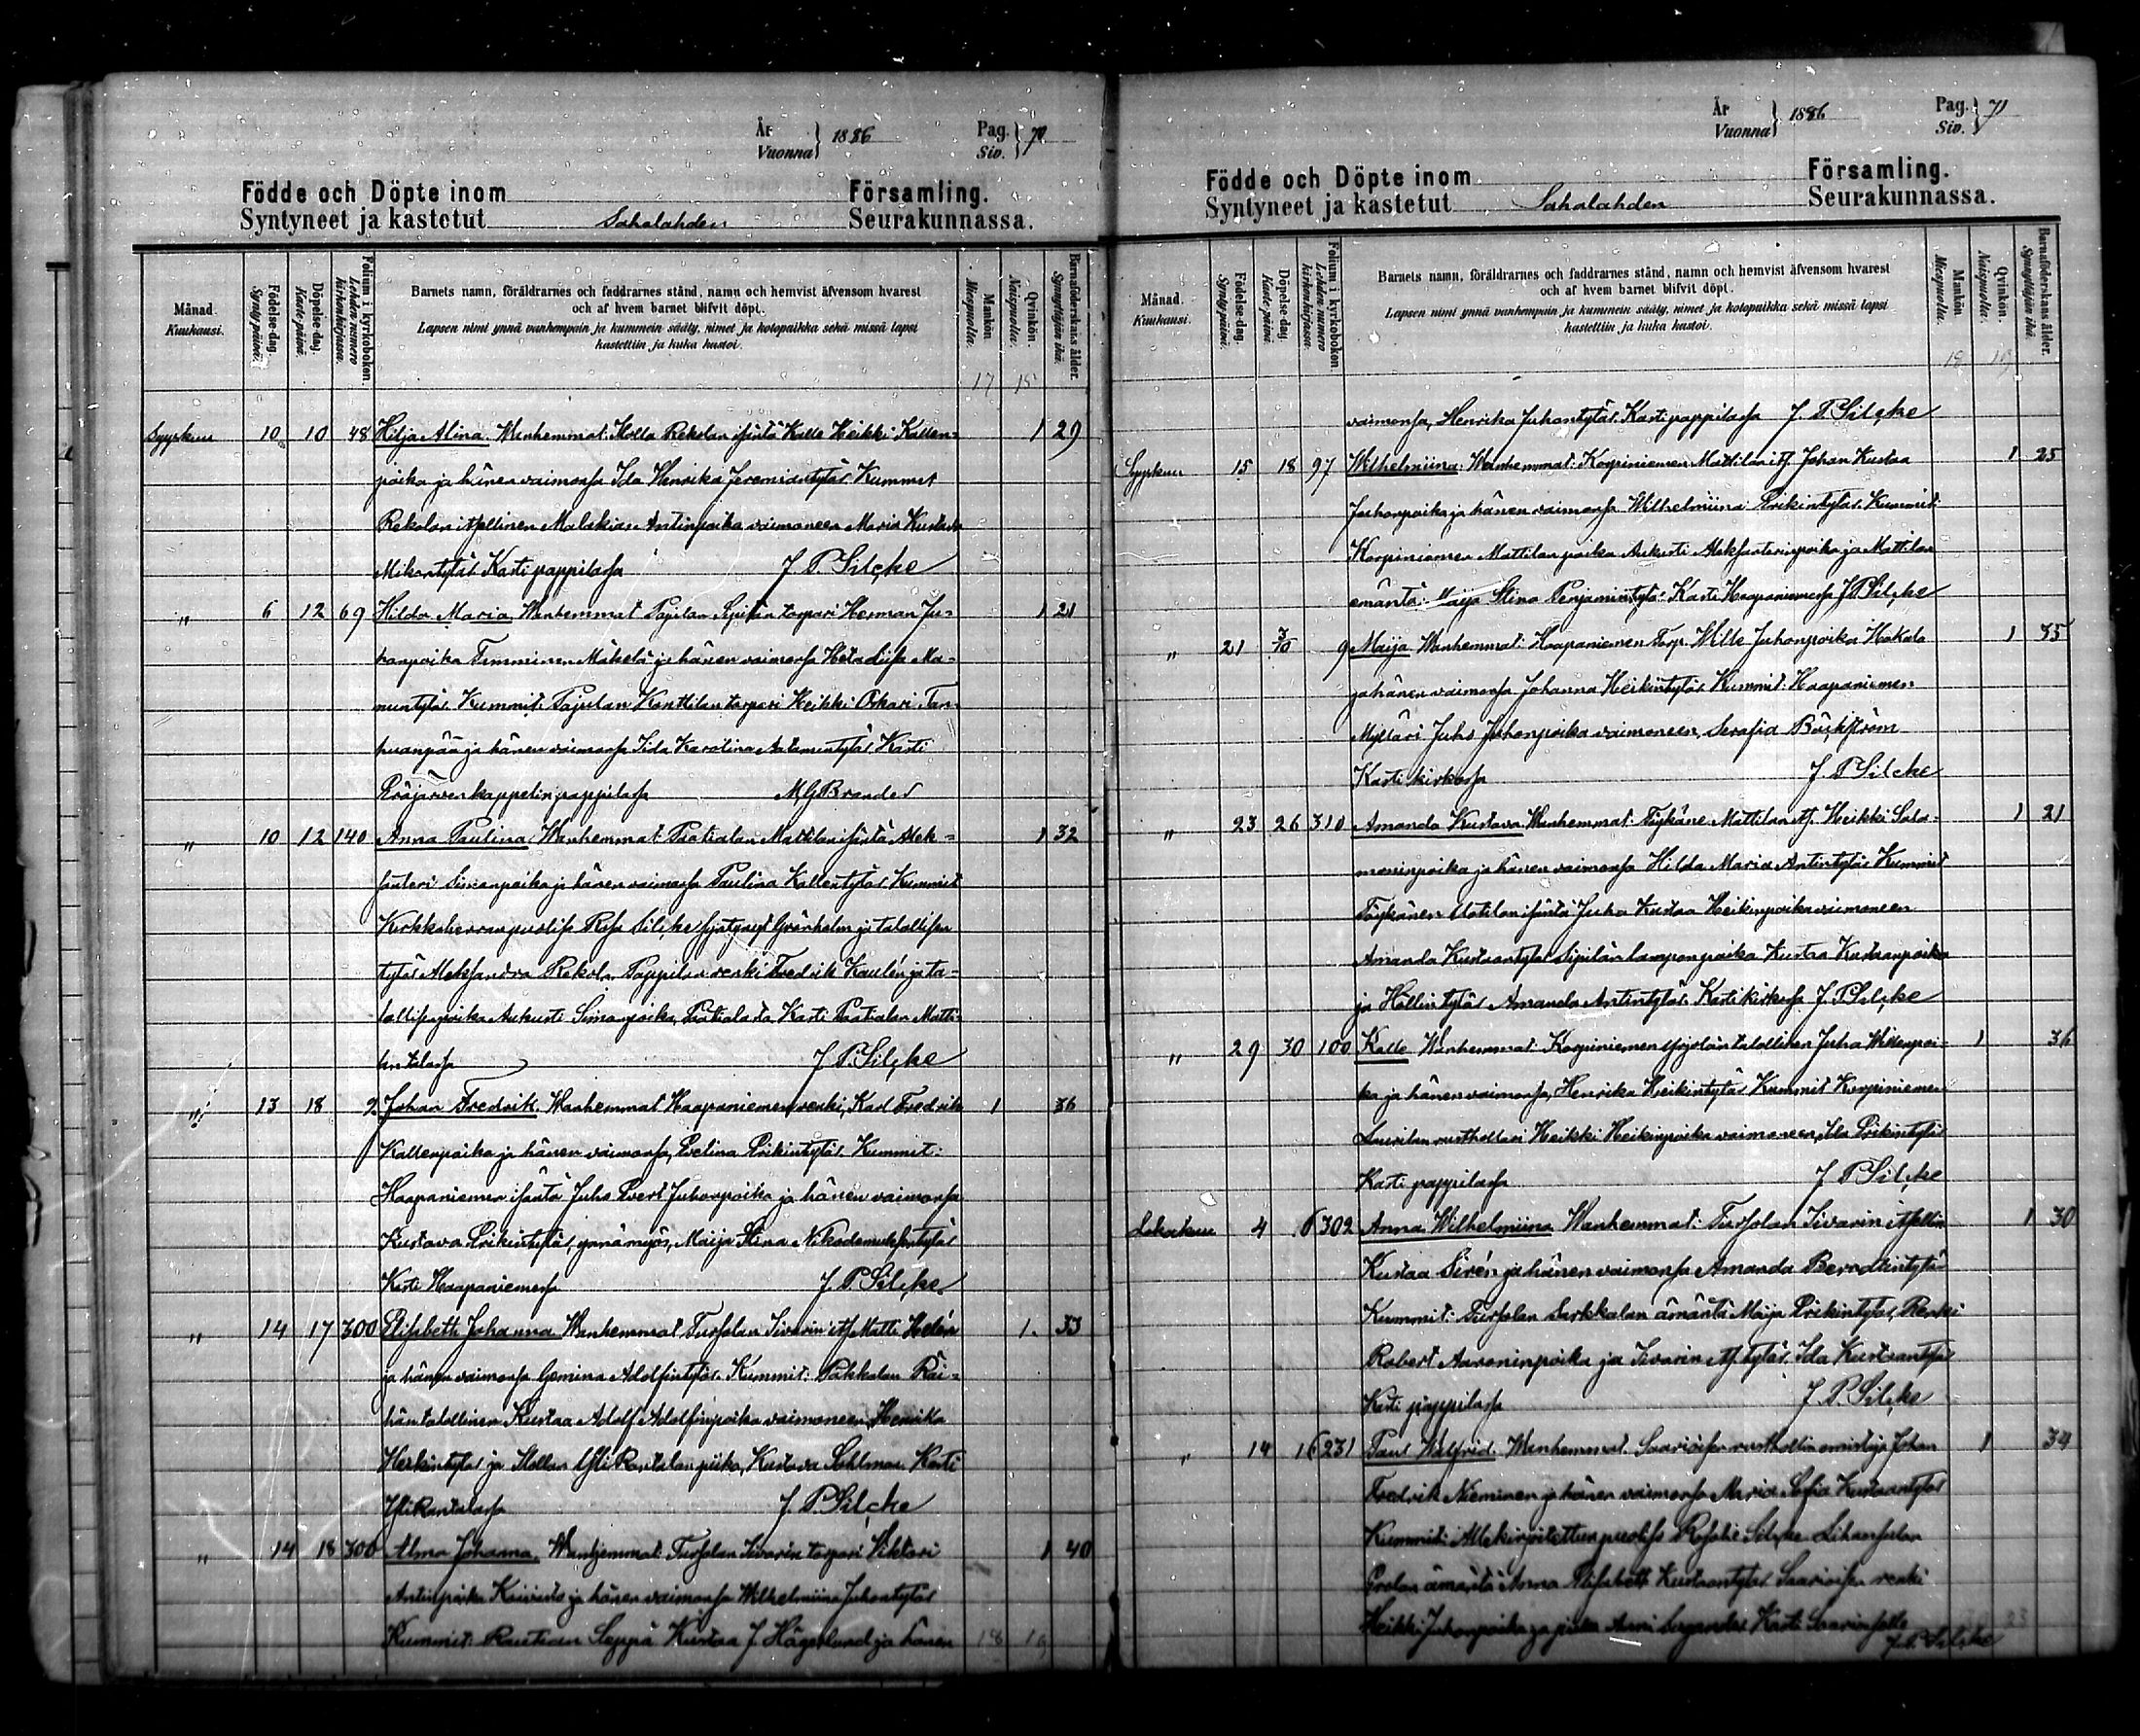 År
Vuonna } 1886 Pag.
Siv. } 70
Födde och Döpte inom Församling.
Syntyneet ja kastetut Sahalahden Seurakunnassa.
Månad. Kuukausi.
Födelse-dag. Syntypäivä.
Döpelse-dag. Kaste-päivä.
Folium i kyrkoboken. Lehden numero kirkonkirjassa.
Barnets namn, föräldrarnes och faddrarnes stånd, namn och hemvist äfvensom hvarest
och af hvem barnet blifvit döpt.
Lapsen nimi ynnä vanhempain ja kummein sääty, nimet ja kotopaikka sekä missä lapsi
kastettiin ja kuka kastoi.
Mankön. Miespuolia.
Qvinkön. Naispuolia.
Barnaföderskans ålder. Synnyttäjän ikä.
17 15
Syyskuu 10 10 48 Hilja Alina. Wanhemmat: Rekolan isäntä Kalle Heikki Kallen- 1 29
poika ja hänen vaimonsa Ida Henrika Jeremiantytär Kummit
Rekolan itsellinen Malakias Antinpoika vaimoneen Maria Kustava
Mikontytär Kasti pappilassa J. P. Silcke
" 6 12 69 Hilda Maria Wanhemmat torpari Herman Ju- 1 21
hanpoika Tamminen Mäkelä ja hänen vaimonsa Ma-
nuntytär Kummit: Kanttilan torpari Heikki Oskari Tan-
huanpää ja hänen vaimonsa Iida Karolina Aatamintytär Kasti
kappelin pappilassa M G Brander
" 10 12 140 Anna Paulina Wanhemmat Mattilan isäntä Alek-
santeri Simonpoika ja hänen vaimonsa Paulina Kallentytär Kummit 1 32
Kirkkoherran puolisa Rosa Silcke syntynyt Granholm ja talollisen
tytär Aleksandra Rekola Pappilan renki Fredrik ja ta-
lollisenpoika Aukusti Simonpoika, Kasti Matti-
lan talossa J. P. Silcke
" 13 18 2 Johan Fredrik. Wanhemmat Haapaniemen renki, Karl Fredrik 1 36
Kallenpoika ja hänen vaimonsa, Evelina Erikintytär. Kummit:
Haapaniemen isäntä Juho Evert Juhonpoika ja hänen vaimonsa
Kustava Erikintytär, Maija Stina Nikodemuksentytär
Kasti Haapaniemessä J. P. Silcke.
" 14 17 300 Elisabeth Johanna Wanhemmat Tursolan Iivarin its. Matti Helén 1. 33
ja hänen vaimonsa Gemina Adolfintytär. Kummit: Pakkalan Räi-
hän talollinen Kustaa Adolf Adolfinpoika vaimoneen Henrika
Heikintytär ja Kustava Sahlman. Kasti
J. P. Silcke
" 14 18 300 Alma Johanna. Wanhemmat: Tursolan Iivarin torpari Viktori 1 40
Antinpoika Koivisto ja hänen vaimonsa Wilhelmiina Juhontytär
Kummit: Rautian Seppä Kustaa J. Hägglund ja hänen 18 19
År
Vuonna } 1886 Pag.
Siv. } 71
Födde och Döpte inom Församling.
Syntyneet ja kastetut Sahalahden Seurakunnassa.
Månad. Kuukausi.
Födelse-dag. Syntypäivä.
Döpelse-dag. Kaste-päivä.
Folium i kyrkoboken. Lehden numero kirkonkirjassa.
Barnets namn, föräldrarnes och faddrarnes stånd, namn och hemvist äfvensom hvarest
och af hvem barnet blifvit döpt.
Lapsen nimi ynnä vanhempain ja kummein sääty, nimet ja kotopaikka sekä missä lapsi
kastettiin ja kuka kastoi.
Mankön. Miespuolia.
Qvinkön. Naispuolia.
Barnaföderskans ålder. Synnyttäjän ikä.
18 19
vaimonsa, Henrika Juhantytär. Kasti pappilassa J. P. Silcke
Syyskuu 15 18 97 Wilhelmiina: Wanhemmat: Korpiniemen Mattilan its. Johan Kustaa 1 25
Juhonpoika ja hänen vaimonsa Wilhelmiina Erikintytär Kummit:
Korpiniemen Mattilan poika Aukusti Aleksanterinpoika ja Mattilan
emäntä: Maija Stina Penjamintytär Kasti Haapaniemessä J P Silcke
" 21 3/10 9 Maija Wanhemmat: Haapaniemen Torp. Wille Juhonpoika Hakala 1 35
ja hänen vaimonsa Johanna Heikintytär Kummit: Haapaniemen
Mylläri Juho Juhonpoika vaimoneen, Serafia Bäckström
Kasti kirkossa J. P. Silcke
" 23 26 310 Amanda Kustava Wanhemmat: Töykäne Mattilan its. Heikki Salo- 1 21
moninpoika ja hänen vaimonsa Hilda Maria Antintytär Kummit
Töykänen isäntä Juha Kustaa Heikinpoika vaimoneen
Amanda Kustaantytär Sipilän lampuripoika Kustaa Kustaanpoika
ja Amanda Antintytär. Kasti kirkossa J. P. Silcke
" 29 30 100 Kalle Wanhemmat Korpiniemen Yrjölän talollinen Juha Willenpoi- 1 36
ka ja hänen vaimonsa, Henrika Heikintytär Kummit Korpiniemen
Laurilan rusthollari Heikki Heikinpoika vaimoneen, Ida Erikintytär
Kasti pappilassa J P Silcke
Lokakuu 4 6 302 Anna Wilhelmiina Wanhemmat: Tursolan Iivarin itsellin 1 30
Kustaa Sirén ja hänen vaimonsa Amanda Berndtintytär
Kummit: Tursolan Sarkkalan ämäntä Maija Erikintytär, Renki
Robert Aaroninpoika ja Iivarin its. tytär. Ida Kustaantytär
Kasti pappilassa J. P. Silcke
" 14 16 231 Paul Walfrid. Wanhemmat. Saarioisen rusthollin omistaja Johan 1 34
Fredrik Nieminen ja hänen vaimonsa Maria Sofia Kustaantytär
Kummit: Allekirjoitettun puoliso Rosalie Silcke
ämäntä Anna Elisabeth Kustaantytär Saarioisen renki
Heikki Juhonpoika ja piika Kasti 23
J. P. Silcke